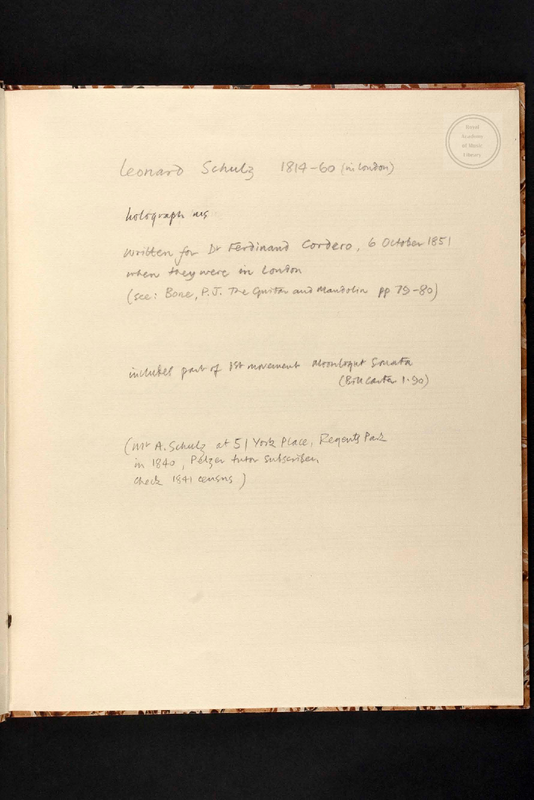 Royal
Academy
of Music
Library
Leonard Schulz 1814-60 (in London)
holograph ms
written for Dr Ferdinand Cordero, 6 October 1851
when they were in London
(see: Bone, P.J. The Guitar and Mandolin pp 79-80)
includes part of 1st movement Moonlight Sonata
(Bill Carter 1.90)
(Mr A. Schulz at 51 York Place, Regents Park
in 1840, Pelzer tutor subscriber.
check 1841 census)